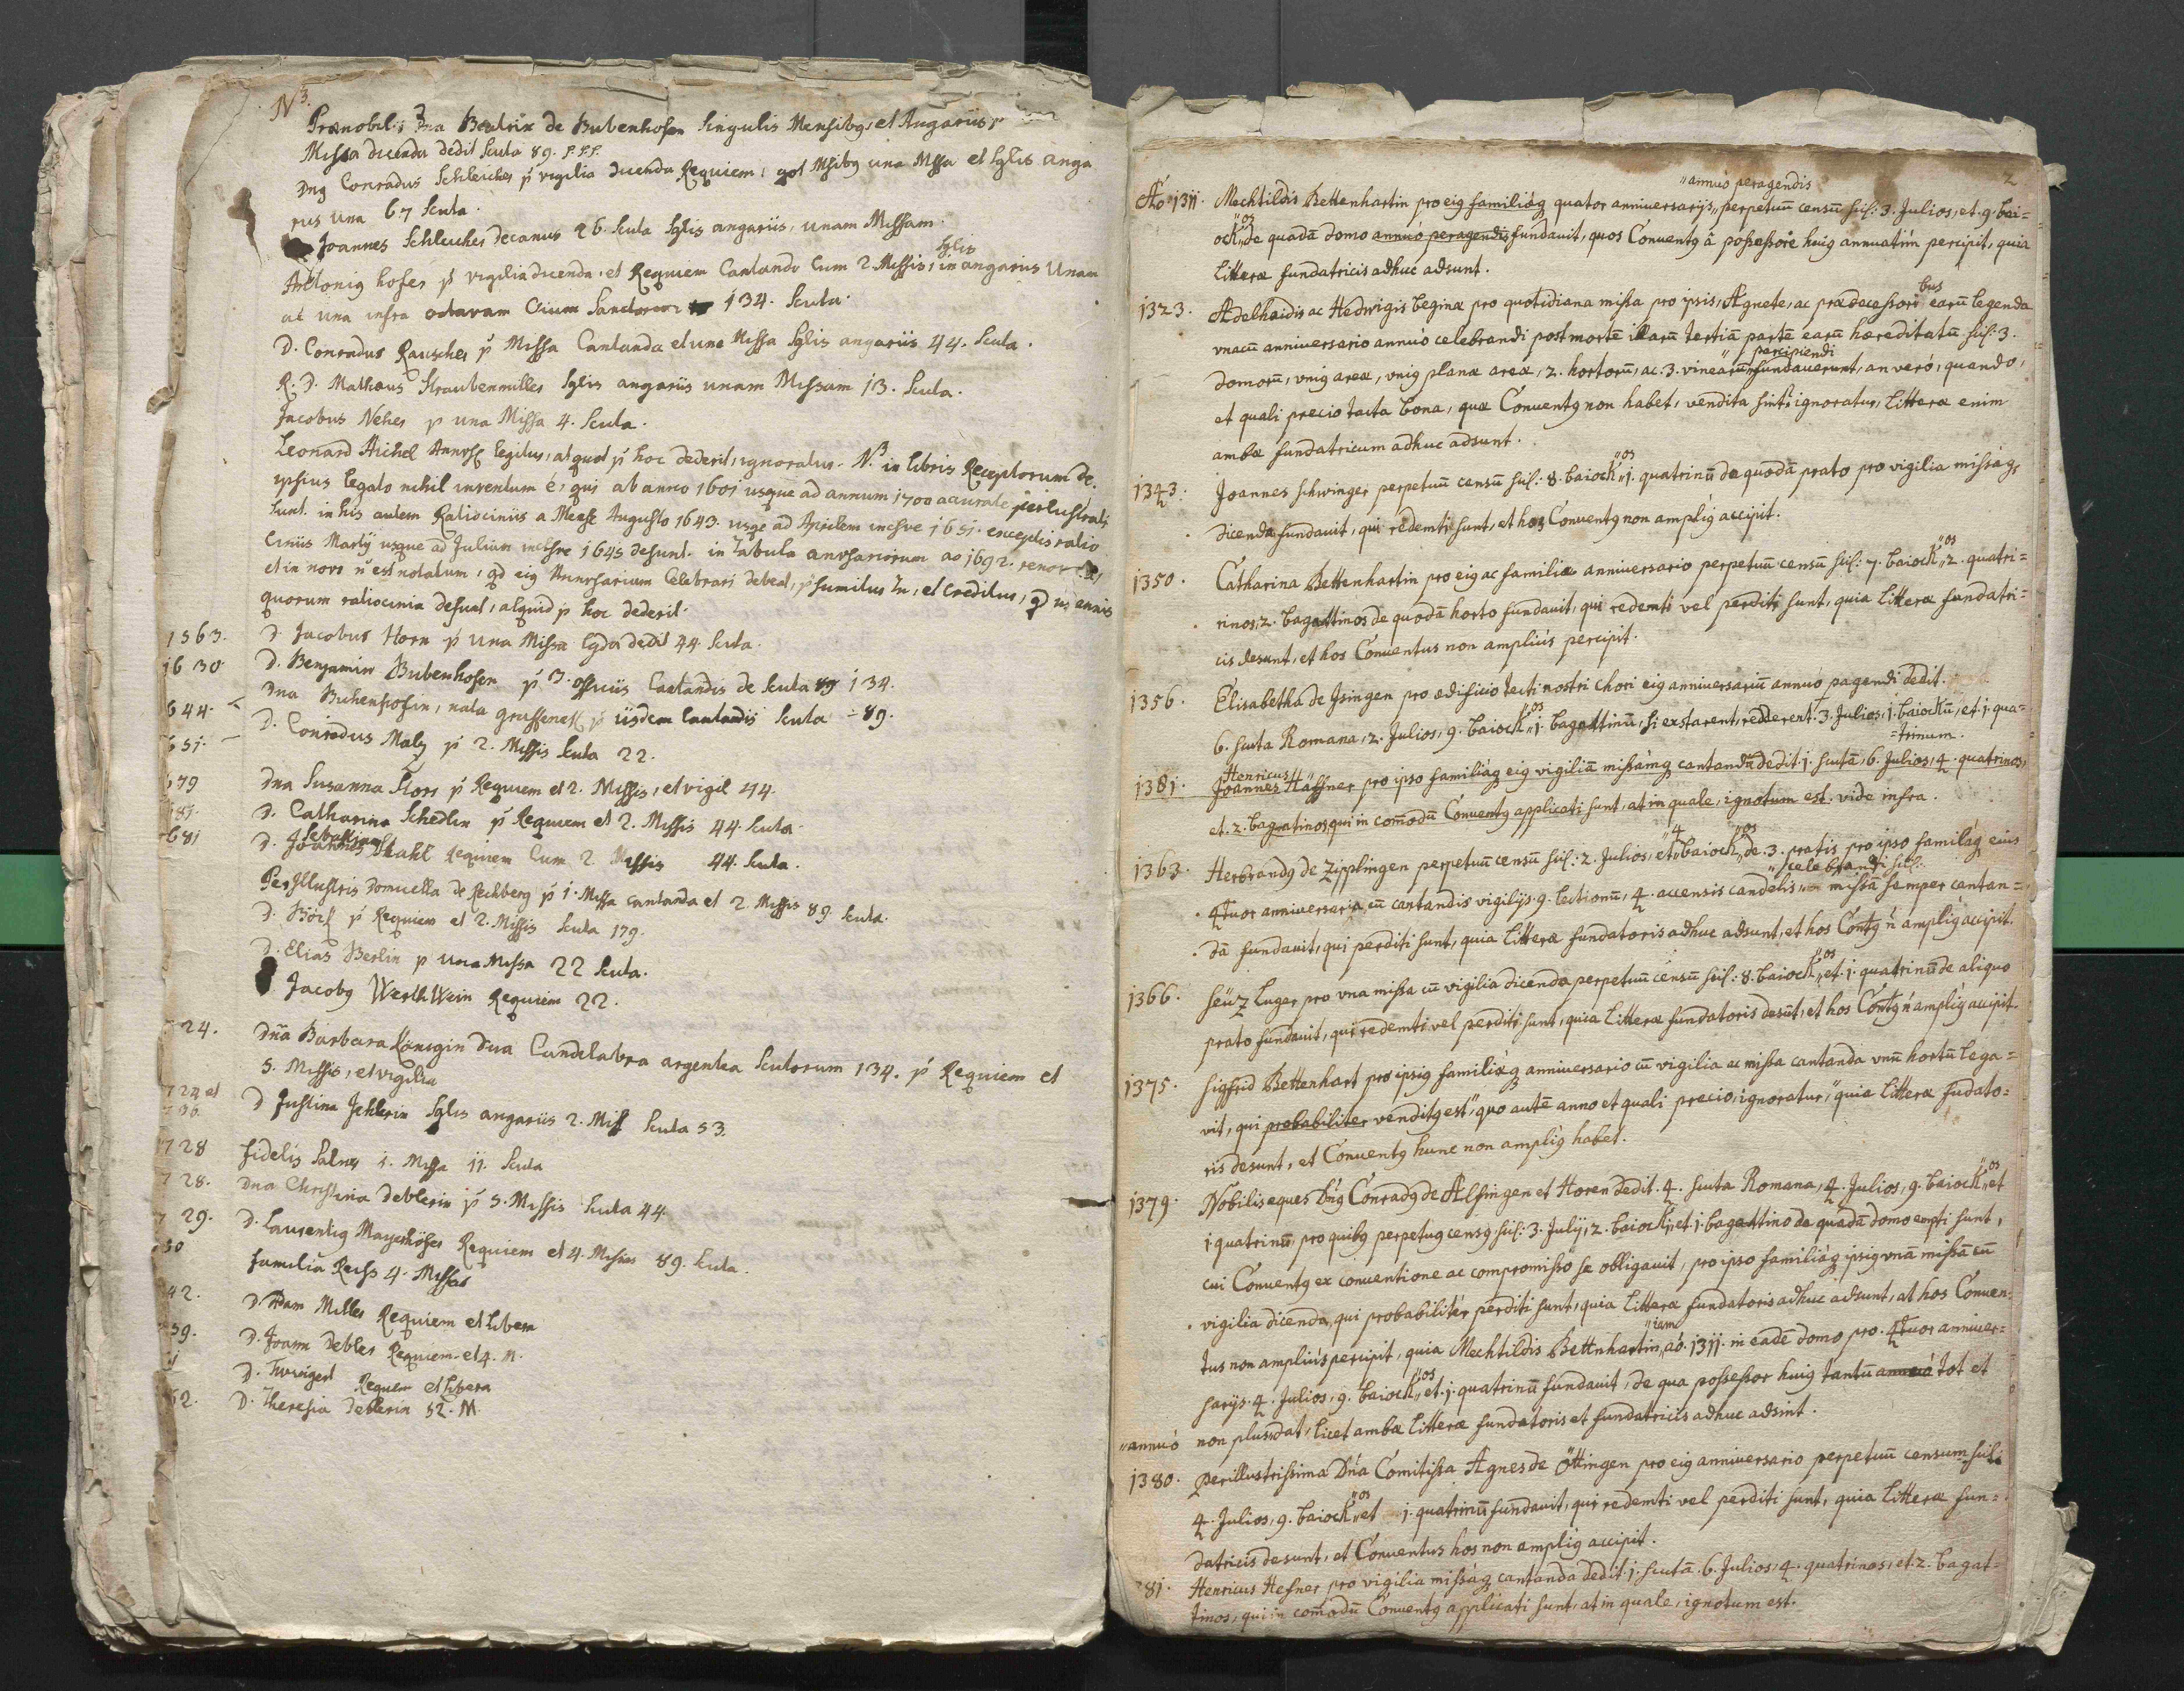 N 3.
Prænobilis Dna Beatrix de Bubenhofen singulis Mensibq, et Angariis
Missa dicenda dedit scuta 89. f.f.f.
Dnq Conradus Schleicher p vigilia dicenda Requiem, una Missa et sglis anga
rus una 67 scuta.
Joannes Schleicher decanus 26. scuta sglis angariis, unam Missam.
Antoniq hofer p vigilia dicenda, et Requiem Cantando cum 2. Missis, in sglis angarius Unam
at una infra octavam Oium Sanctorum 134. scuta.
D. Conradus Rauscher p Missa Cantanda et una Missa sglis angariis 44. scuta.
R. D. Mathæus Straubenmiller sglis angariis unam Missam 13. scuta.
Jacobus Neher p una Missa 4. scuta.
Leonard Michel legitur, at quot p hoc dederit, ignoratur. N.B in libris Receptorum de
ipsius legato nihil inventum é, qui ab anno 1601 usque ad annum 1700 accurate perlustrati
sunt. in his autem Ratiociniis a Mense Augusto 1643. usqe ad Aprilem incsve 1651. exceptis ratio
ciniis Martij usque ad Julium incsve 1645 desunt. in Tabula anrsariorum ao 1692. renov
et in novo n est notatum, qd eiq Anrsarium Celebrari debeat, psumitur tn, et creditur, qd in annis
quorum raliocinia desunt, aliquid p hoc dederit.
1563. D. Jacobus Horn p una Missa dedit 44. scuta.
1630. D. Benjamin Bubenhofen p 3. officiis Cantandis de scuta 134.
644. Dna Bubenhofin, nata p iisdem Cantandis scuta 89.
651. D. Conradus Maly p 2. Missis scuta 22.
679 Dna Susanna Stors p Requiem et 2. Missis, et vigil 44.
681. D. Catharina Schedlin p Requiem et 2. Missis 44. scuta.
681 D. Joannes Sebastian Stahl Requiem Cum 2 Missis 44. scuta.
Perillustris Domicella de Rechberg p 1. Missa cantanda et 2. Missis 89. scuta.
D. p Requiem et 2. Missis scuta 179.
D. Elias Berlin p una Missa 22 scuta.
Jacobq Werthwein Requiem 22.
724. Dña Barbara Königin dua Candelabra argentea scutorum 134. p Requiem et
5. Missis, et vigilia
724 et 736. D Justina Jehlerin sglis angariis 2. Miss scuta 53.
728 fidelis 1. Missa 11. scuta
728. Dna Christina Deblerin p 5. Missis scuta 44.
729. D. Laurentiq Mayerhöfer Requiem et 4. Missas 89. scuta.
30 familia 4. Missas
42. D. Adam Miller Requiem et libera
59. D. Joann Debler Requiem et 4. M.
D. Requiem et libera
62. D. Theresia Deblerin 52. M.
2
"annuó peragendis
Aó. 1311. Mechtildis Bettenhartin pro eiq familiáq quator anniversarijs, perpetuũ censũ scil: 3. Julios, et. 9. bai=
ock"os de quadã domo annuó peragendis fundavit, quos Conventq á possessore huiq annuatim percipit, quia
litteræ fundatricis adhuc adsunt.
1323. Adelhaidis ac Hedwigis beginæ pro quotidiana missa pro ipsis, Agnete, ac prædecessori bus earũ legenda
vnacũ anniversario annuó celebrandi post mortẽ illarũ tertiã partẽ earũ hæreditatũ scil: 3.
domorũ, vniq areæ, vniq planæ areæ, 2. hortorũ, ac. 3. vinearũ "percipiendi fundaverunt, an veró, quando,
et quali precio tacta bona, quæ Conventq non habet, vendita sint, ignoratur, litteræ enim
ambæ fundatricum adhuc adsunt.
1343. Joannes Schwinger perpetuũ censũ scil: 8. baiock"os 1. quatrinũ de quodã prato pro vigilia missáq
dicenda fundavit, qui redemti sunt, et hos Conventq non ampliq accipit.
1350. Catharina Bettenhartin pro eiq ac familiæ anniversario perpetuũ censũ scil: 7. baiock"os, 2. quatri=
rinos, 2. bagattinos de quodã horto fundavit, qui redemti vel perditi sunt, quia litteræ fundatri=
cis desunt, et hos Conventus non ampliús percipit.
1356. Elisabetha de Isingen pro ædificio tecti nostri chori eiq anniversariũ annuó pagendi dedit.
6. scuta Romana, 2. Julios, 9. baiock"os 1. bagattinũ, si exstarent, redderent. 3. Julios, 1. baiockũ, et. 1. qua=
=trinum.
1381. Joannes Henricus Häffner pro ipso familiáq eiq vigiliã missámq cantandã dedit. 1. scutã, 6. Julios, 4. quatrinos,
et. 2. bagatinos, qui in com̃odũ Conventq applicati sunt, at in quale, ignotum est. vide infra.
1363. Herbrandq de Zipplingen perpetuũ censũ scil: 2. Julios, et "4 baiock"os de. 3. pratis pro ipso familáq eius
4tuor anniversaria, cũ cantandis vigilijs. 9. lectionũ, 4. accensis candelis, "celebrandi scil: missã semper cantan=
dã fundavit, qui perditi sunt, quia litteræ fundatoris adhuc adsunt, et hos Contq ñ ampliq accipit.
1366. Seüz Luger pro vna missa cũ vigilia dicenda perpetuũ censũ scil: 8. baiock"os et. 1. quatrinũ de aliquo
prato fundavit, qui redemti vel perditi sunt, quia litteræ fundatoris desũt, et hos Contq ñ ampliq accipit.
1375. Sigfrid Bettenhart pro ipsiq familiáq anniversario cũ vigilia ac missa cantanda vnũ hortũ lega=
vit, qui probabiliter venditq est, quo autẽ anno et quali precio, ignoratur, quia litteræ fũdato=
ris desunt, et Conventq hunc non ampliq habet.
1379. Nobilis eques Dñq Conradq de Alfingen et Horen dedit. 4. scuta Romana, 4. Julios, 9. baiock"os et
1 quatrinũ, pro quibq perpetuq censq, scil: 3. Julij, 2. baiocki, et. 1. bagattino de quadã domo empti sunt,
cui Conventq ex conventione ac compromisso se obligavit, pro ipso familiáq ipsiq vnã missã cũ
vigilia dicenda, qui probabilitér perditi sunt, quia litteræ fundatoris adhuc adsunt, at hos Conven=
tus non ampliús percipit, quia Mechtildis Bettnhartin "iam aó. 1311. in eadẽ domo pro. 4tuor anniver=
sarijs. 4. Julios, 9. baiock"os et. 1. quatrinũ fundavit, de qua possessor huiq tantũ annuó tot et
"annuó non plus dat, licet ambæ litteræ fundatoris et fundatricis adhuc adsint.
1380. Perillustrissima Dña Comitissa Agnes de Öttingen pro eiq anniversario perpetuũ censum scil:
4. Julios, 9. baiock"os et 1. quatrinũ fundavit, qui redemti vel perditi sunt, quia litteræ fun=
datricis desunt, et Conventus hos non ampliq accipit.
81. Henricus Hefner pro vigilia missáq cantanda dedit. 1. scutã. 6. Julios, 4. quatrinos, et. 2. bagat=
tinos, qui in com̃odũ Conventq applicati sunt, at in quale, ignotum est.